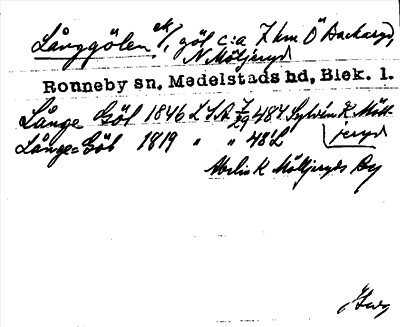 Långgölen, ek/, göl c:a 7 km Ö Backaryd,
N Möljeryd
Ronneby sn, Medelstads hd, Blek. l.
Långe Göl 1846 LSA 7/29 48 L Sylvén K Möll-
jeryd
Långe=Göl 1819 " " 48 L
K Möljeryds By